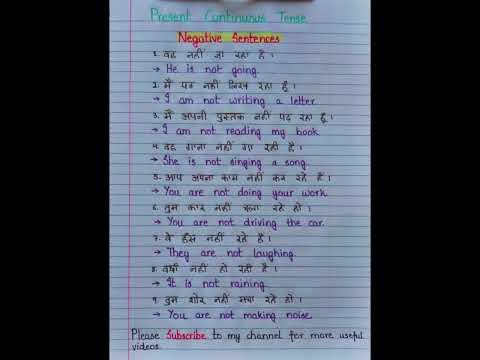 Present Continuous Tense
Negative Sentences
1. वह नहीं जा रहा है।
→ He is not going.
2. मैं पत्र नहीं लिख रहा हूँ।
→ I am not writing a letter.
3. मैं अपनी पुस्तक नहीं पढ़ रहा हूँ।
→ I am not reading my book.
4. वह गाना नहीं गा रही है।
→ She is not singing a song.
5. आप अपना काम नहीं कर रहे हैं।
→ You are not doing your work.
6. तुम कार नहीं चला रहे हो।
→ You are not driving the car.
7. वे हँस नहीं रहे हैं।
→ They are not laughing.
8. वर्षा नहीं हो रही है।
→ It is not raining.
9. तुम शोर नहीं मचा रहे हो।
→ You are not making noise.
Please Subscribe to my channel for more useful
videos.